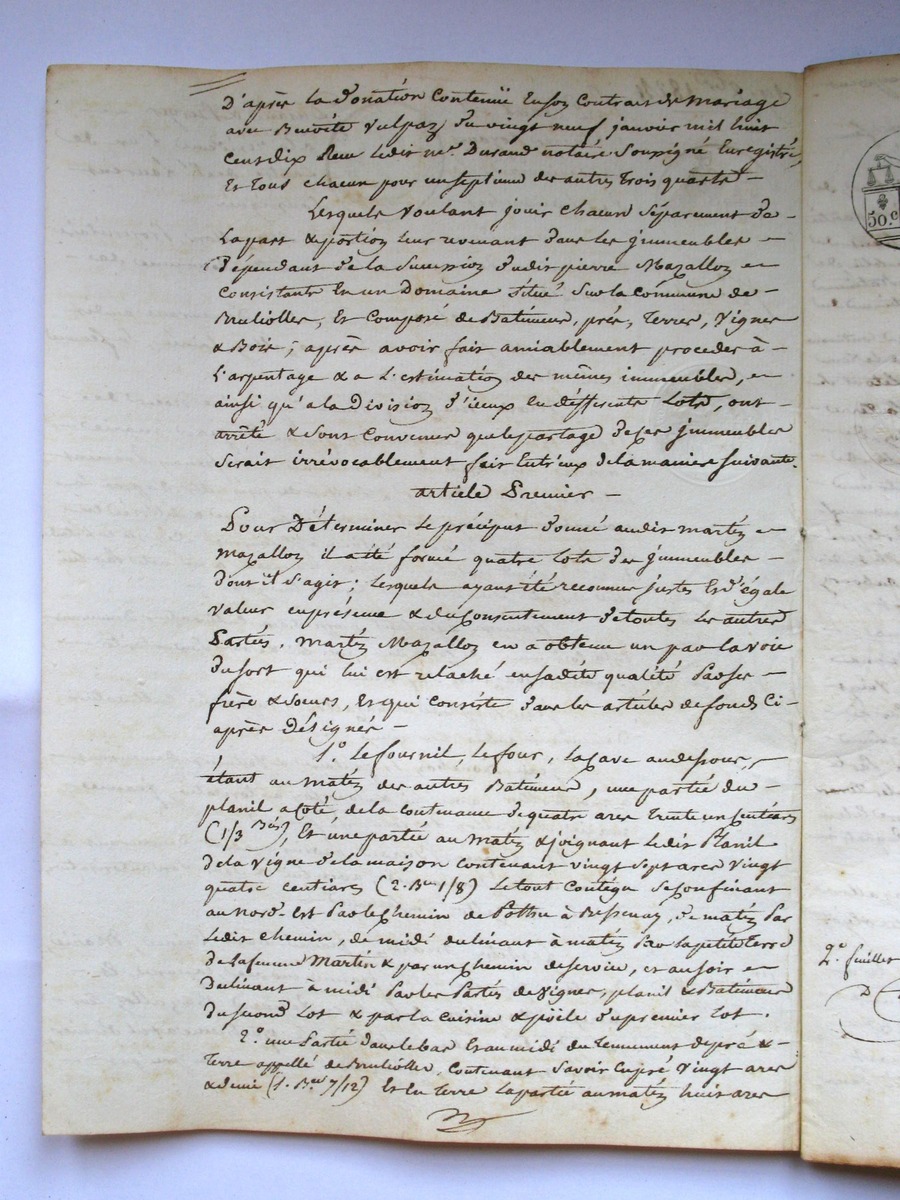 D'après la donation contenuë en son contrat de mariage
avec Benoite Vulpaz du vingt neuf janvier mil huit
cent dix Reçu ledit me. Durand notaire soussigné Enregistré,
Et tous chacun pour un septieme des autres trois quarts -
Lesquels voulant jouir chacun séparement de -
la part & portion leur revenant dans les jmmeubles -
dépendant de la succession dudit pierre Mazalloz -
consistants En un Domaine situé sur la commune de -
Bruliolles, Et composé de Batiments, prés, Terres, Vignes
& Bois ; après avoir fait amiablement proceder à -
L'arpentage & a L'estimation des mêmes immeubles, -
ainsi qu'a la Division d'iceux en differents Lots, ont -
arrêté & sont convenus que le partage de ces jmmeubles
serait irrévocablement fait Entr'eux de la maniere suivante.
article Premier -
Pour Déterminer le préciput donné audit Martin -
Mazalloz il a été formé quatre lots des jmmeubles -
dont il s'agit ; lesquels ayant été reconnus justes Et d'égale
valeur en présence & du consentement de toutes les autres
Parties, Martin Mazalloz en a obtenu un par la voie
du sort qui lui est relaché en sadite qualité Par ses -
frère & soeurs, Et qui consiste dans les articles de fonds Ci-
après Désignés -
1.° Le fournil, Le four, la cave au dessous, -
étant au matin des autres Batiments, une partie du -
planil a coté, de la contenance de quatre ares trente un centiares
(1/3 Bée), Et une partie au matin & joignant ledit Planil
de la vigne de la maison contenant vingt sept ares vingt
quatre centiares (2. Bées 1/8) Le tout contigu se confinant
au nord-est Par le chemin de Pothu à Bessenay, de matin par
ledit chemin, de midi declinant à matin Par la petite terre
de la femme Martin & par un chemin de service, et au soir -
declinant à midi Par les Parties de vignes, planil & Batiments
du second Lot & par la cuisine & poële du premier lot.
2.° une Partie dans le bas Et au midi du Tennement de pré & -
Terre appellé de Bruliolles, contenant savoir En pré Vingt ares
& demi (1. Bée 7/12) Et En Terre la partie au matin huit ares
50.c
2.e feuillet